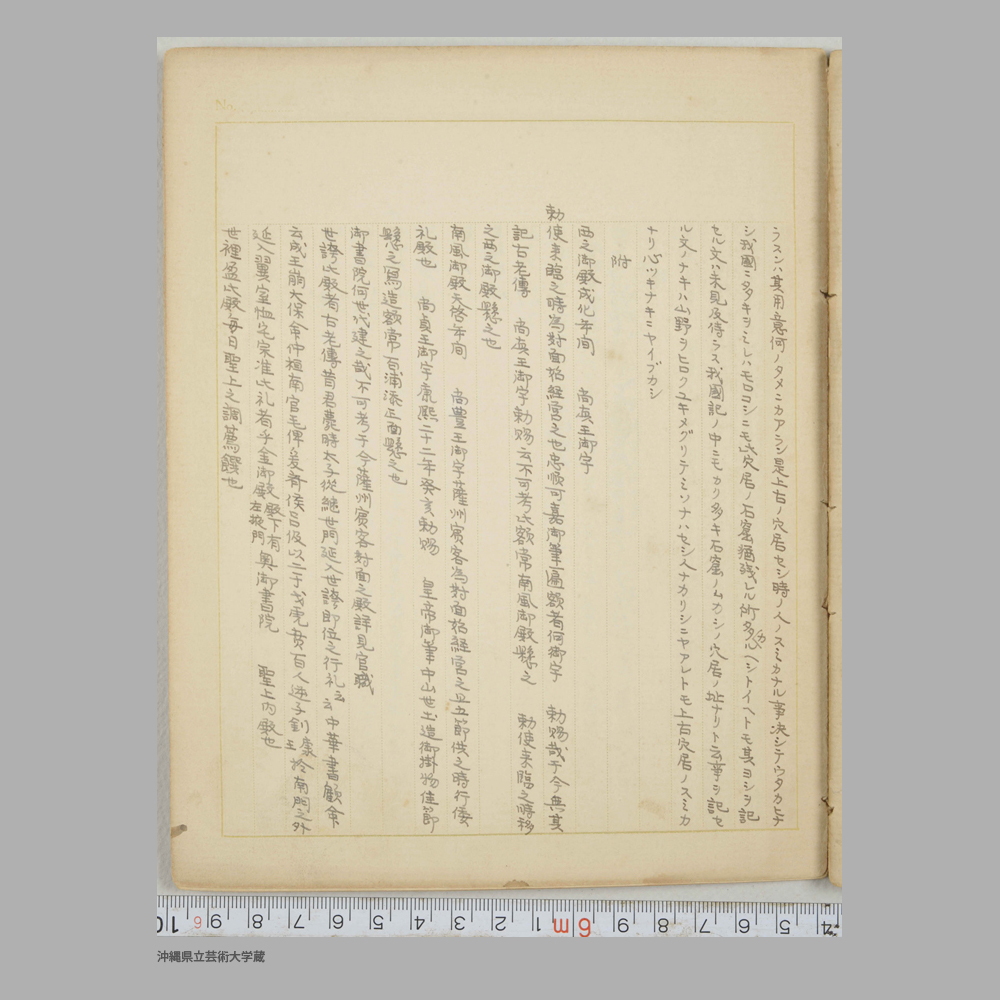 ラスンハ其用意何ノタメニカアラン是上古ノ穴居セシ時ノ人ノスミカナル事決シテウタカヒナ
シ我國ニ多キヲミレハモロコシニモ此穴居ノ石窟猶残レル所多カルヘシトイヘトモ其ヨシヲ記
セル文ハ未見及侍ラス我國記ノ中ニモカク多キ石窟ノムカシノ穴居ノ址ナリト云事ヲ記セ
ル文ノナキハ山野ヲヒロクユキメグリテミソナハセシ人ナカリシニヤアレトモ上古穴居ノスミカ
ナリ心ツキナキニヤイブカシ
附
西之御殿成化年間 尚真王御宇
勅使来臨之時為對面始経営之也忠順可嘉御筆一遍額者何御宇 勅賜哉于今無其
記古老傳 尚真王御宇勅賜云不可考此額常南風御殿懸之 勅使来臨之時移
之西之御殿懸之也
南風御殿天啓年間 尚豊王御宇薩州賓客為對面始経営之且五節供之時行倭
礼殿也 尚貞王御宇康熙二十二年癸亥勅賜 皇帝御筆中山世土造御掛物佳節
懸之寫造額常百浦添正面懸之也
御書院何世代建之哉不可考于今薩州賓客對面之殿詳見官職
世誇此殿者古老傳昔君薨時太子從継世門延入世誇即位之行礼云云中華書顧命
云成王崩大保命仲桓南宮毛俾爰齊侯呂伋以二干戈虎賁百人逆子釗康王於南門之外
延入翼室恤宅宗准此礼者乎金御殿殿下有左掖門奥御書院 聖上内殿也
世裡盈此殿毎日聖上之調薦饌也
No.
10 9 8 7 6 5 4 3 2 1 6m 9 8 7 6 5 4
沖縄県立芸術大学蔵